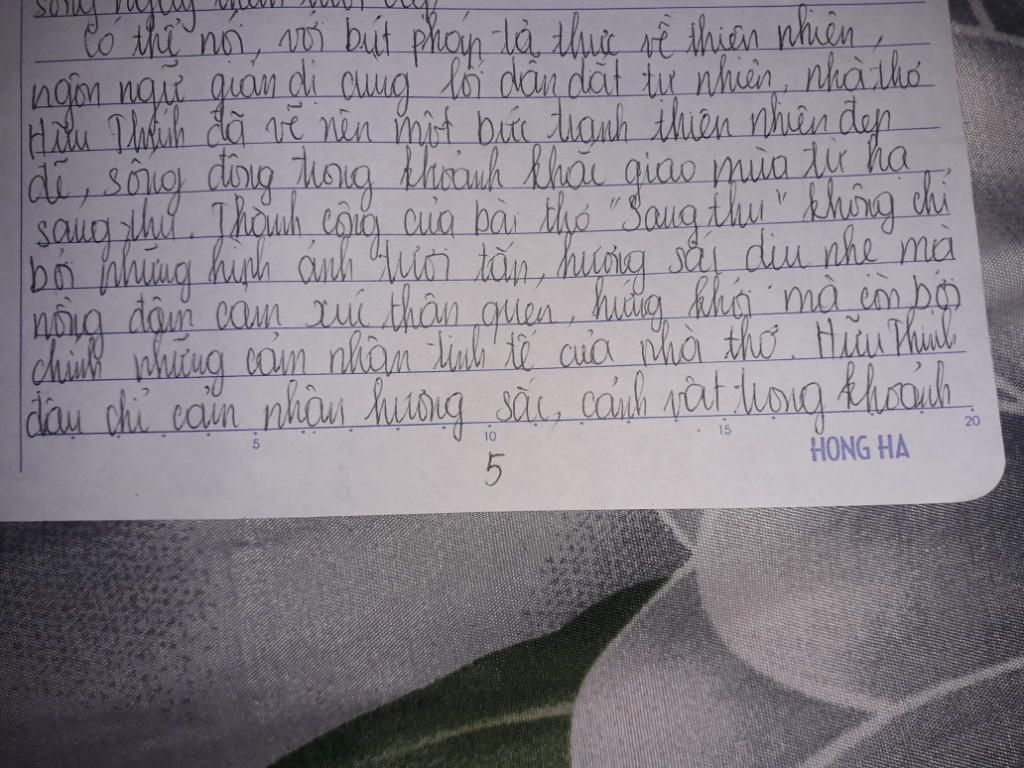 Có thể nói, với bút pháp tả thực về thiên nhiên,
ngôn ngữ giản dị cùng lối dẫn dắt tự nhiên, nhà thơ
Hữu Thỉnh đã vẽ nên một bức tranh thiên nhiên đẹp
đẽ, sống động trong khoảnh khắc giao mùa từ hạ
sang thu. Thành công của bài thơ "Sang thu" không chỉ
bởi những hình ảnh tươi tắn, hương sắc dịu nhẹ mà
nồng đậm cảm xúc thân quen, hứng khởi mà còn bởi
chính những cảm nhận tinh tế của nhà thơ. Hữu Thỉnh
đâu chỉ cảm nhận hương sắc, cảnh vật trong khoảnh
5 10 15 20
HONG HA
5